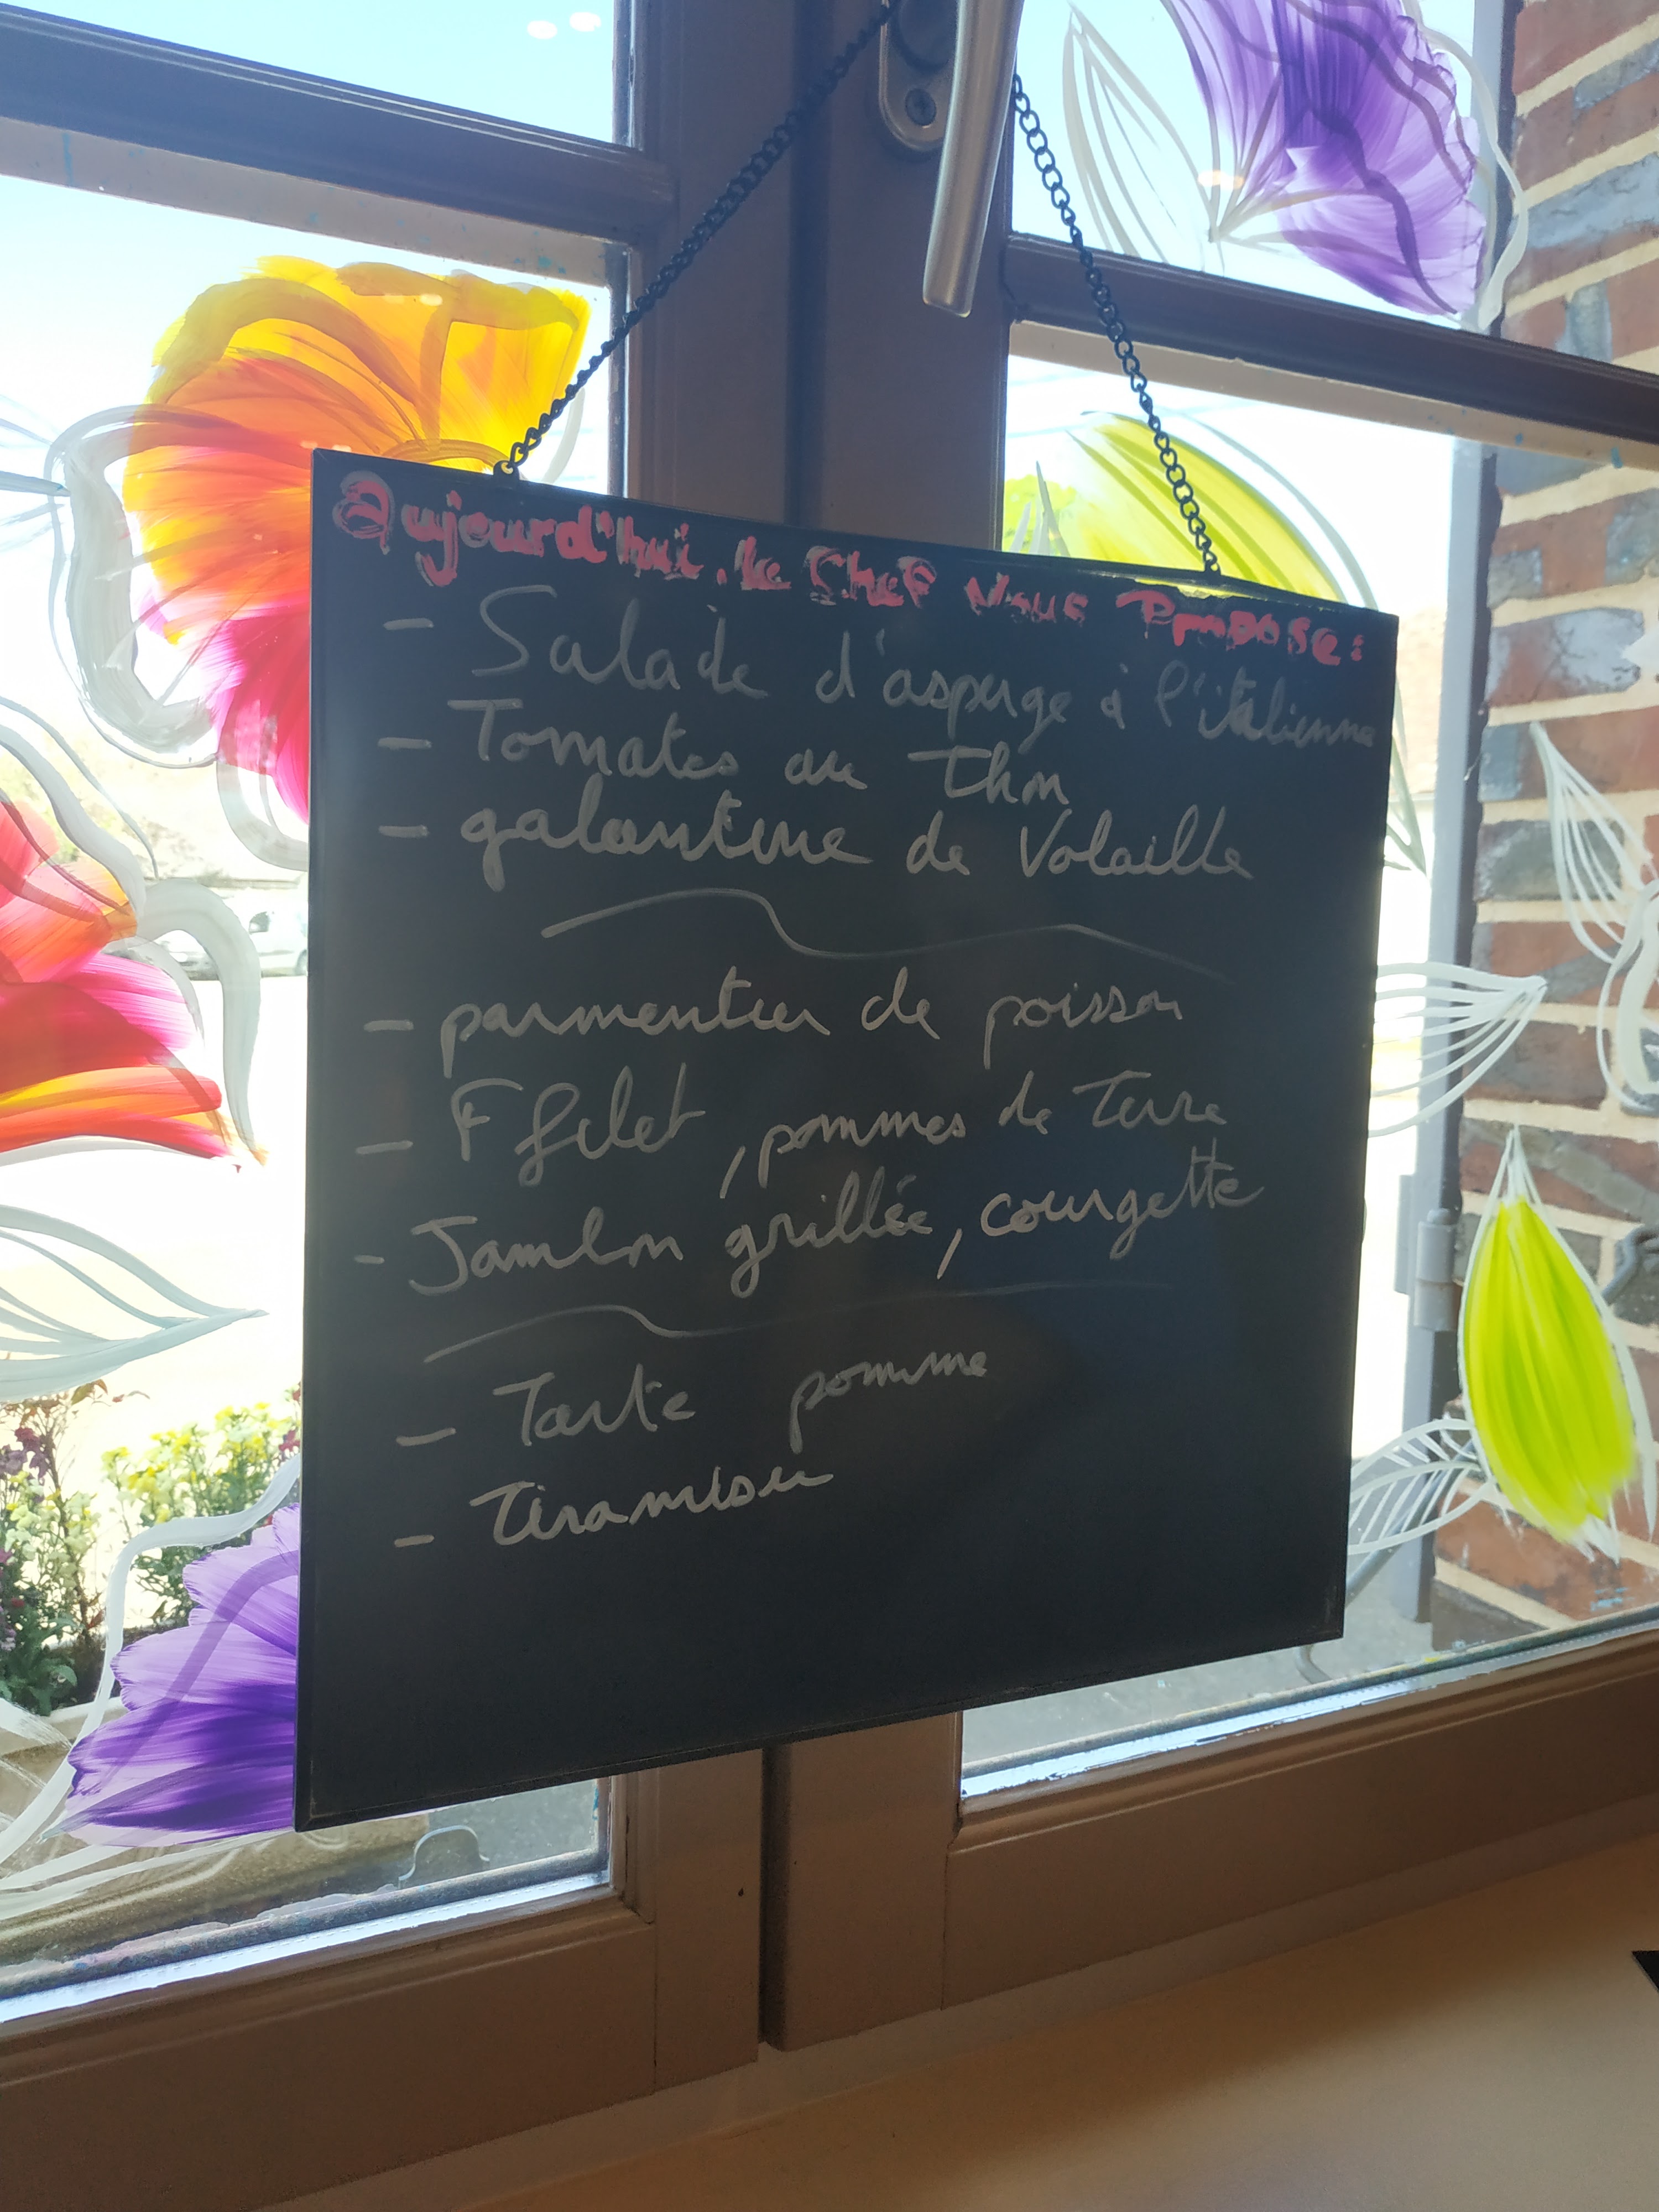 aujourd'hui, le Chef Vous Propose:
- Salade d'asperge à l'italienne
- Tomates au thon
- galantine de Volaille
- parmentier de poisson
- F filet, pommes de Terre
- Jambon grillée, courgette
- Tarte pomme
- Tiramisu